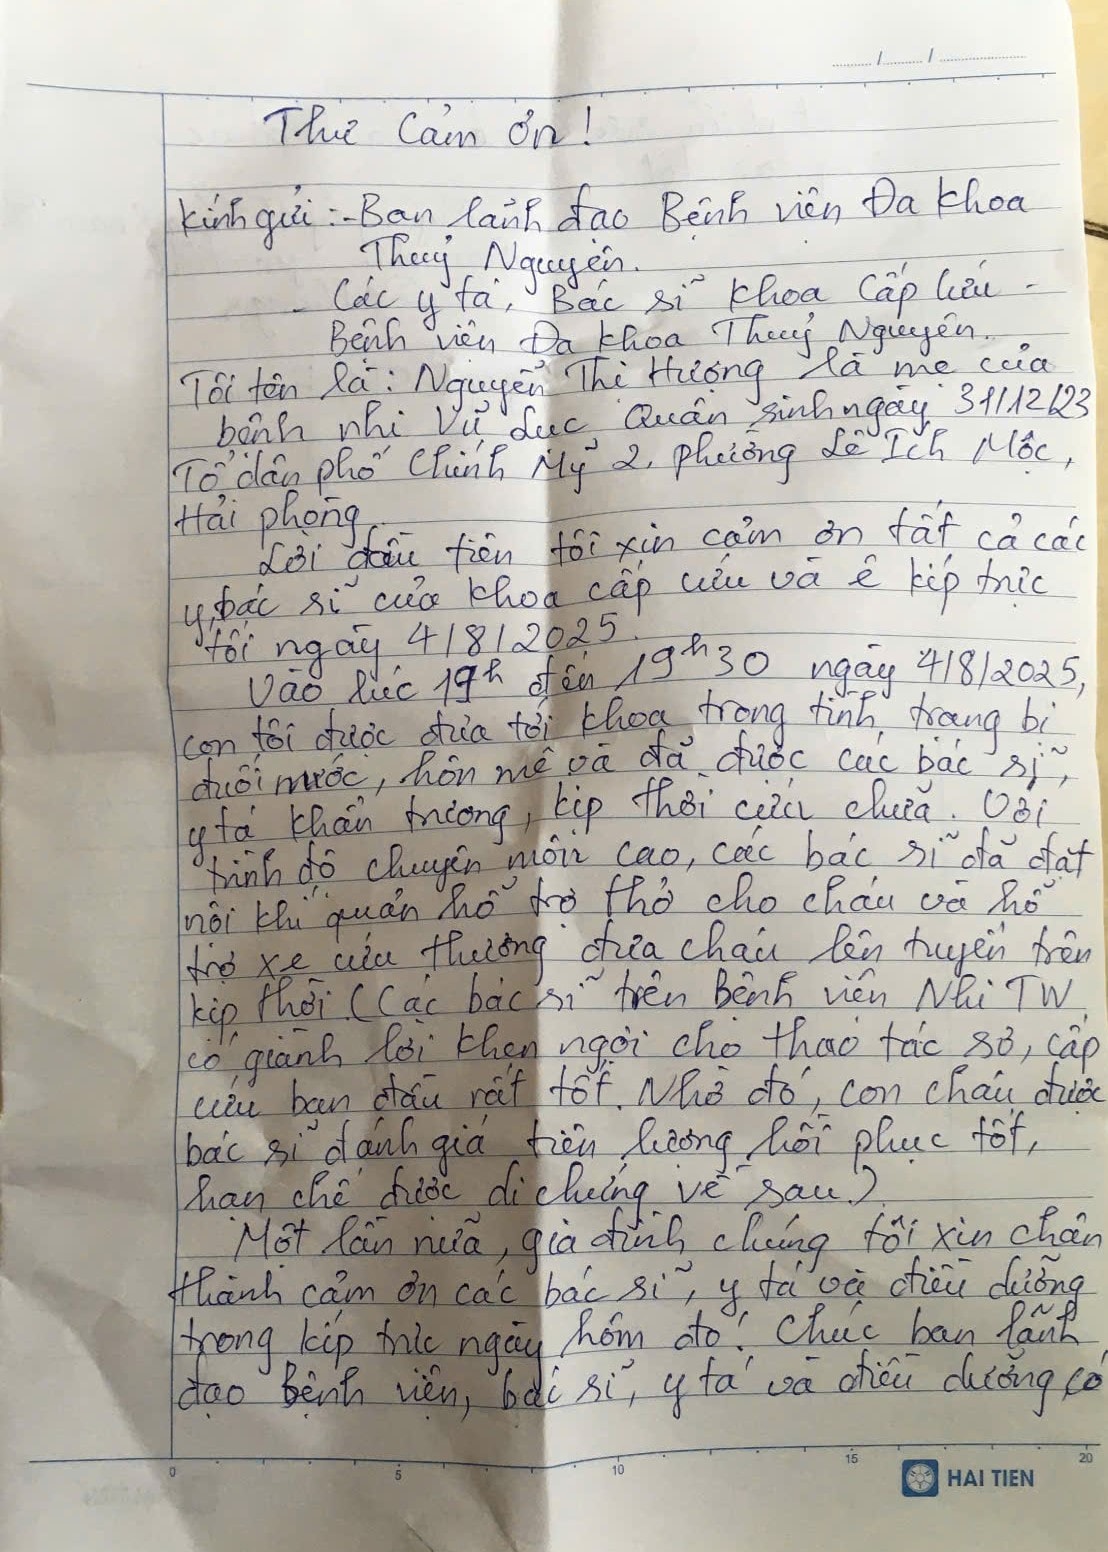 Thư Cảm ơn!
Kính gửi: - Ban lãnh đạo Bệnh viện Đa khoa
Thuỷ Nguyên.
- Các y tá, Bác sĩ khoa Cấp cứu -
Bệnh viện Đa khoa Thuỷ Nguyên.
Tôi tên là: Nguyễn Thị Hương là mẹ của
bệnh nhi Vũ Đức Quân sinh ngày 31/12/23
Tổ dân phố Chính Mỹ 2, phường Lê Ích Mộc,
Hải phòng
Lời đầu tiên tôi xin cảm ơn tất cả các
y, bác sĩ của khoa cấp cứu và ê kíp trực
tối ngày 4/8/2025.
Vào lúc 19h đến 19h30 ngày 4/8/2025,
con tôi được đưa tới khoa trong tình trạng bị
đuối nước, hôn mê và đã được các bác sĩ,
y tá khẩn trương, kịp thời cứu chữa. Với
trình độ chuyên môn cao, các bác sĩ đã đặt
nội khí quản hỗ trợ thở cho cháu và hỗ
trợ xe cứu thương đưa cháu lên tuyến trên
kịp thời (Các bác sĩ trên Bệnh viện Nhi TW
có giành lời khen ngợi cho thao tác sơ, cấp
cứu ban đầu rất tốt. Nhờ đó, con cháu được
bác sĩ đánh giá tiên lượng hồi phục tốt,
hạn chế được di chứng về sau.)
Một lần nữa, gia đình chúng tôi xin chân
thành cảm ơn các bác sĩ, y tá và điều dưỡng
trong kíp trực ngày hôm đó. Chúc ban lãnh
đạo bệnh viện, bác sĩ, y tá và điều dưỡng có
0 5 10 15 20
HAI TIEN